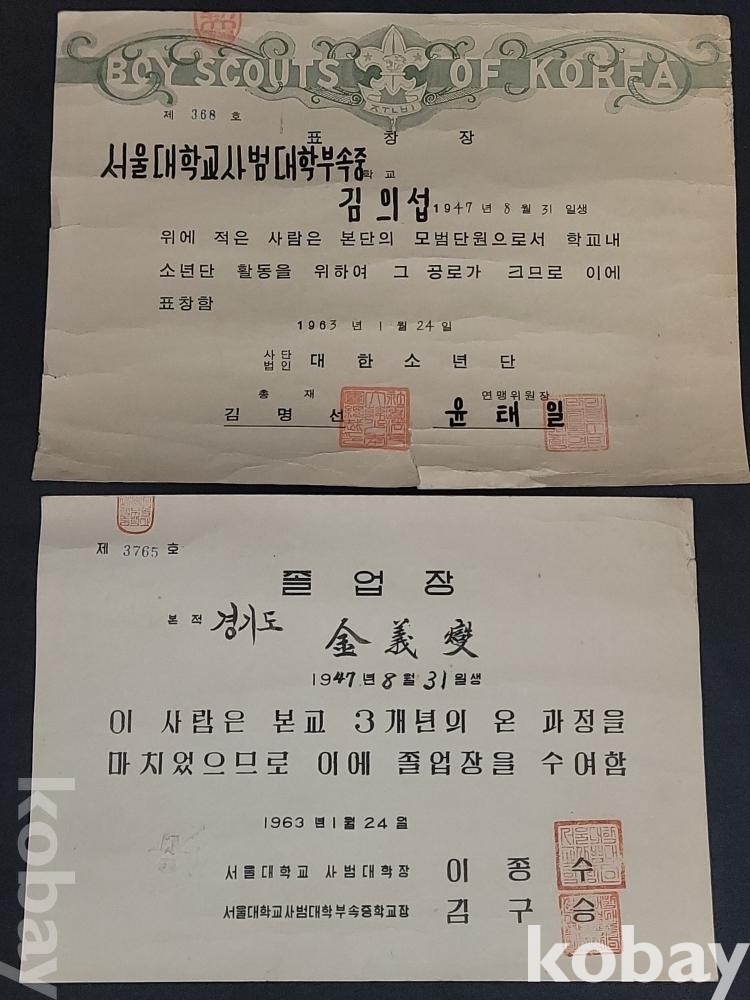 BOY SCOUTS OF KOREA
제 368 호
표 창 장
서울대학교사범대학부속중학교
김의섭 1947년 8월 31일생
위에 적은 사람은 본단의 모범단원으로서 학교내
소년단 활동을 위하여 그 공로가 크므로 이에
표창함
1963년 1월 24일
사단법인 대한소년단
총재 연맹위원장
김명선 윤태일
제 3765 호
졸업장
본적 경기도 金義燮
1947년 8월 31일생
이 사람은 본교 3개년의 온 과정을
마치었으므로 이에 졸업장을 수여함
1963년 1월 24일
서울대학교 사범대학장 이종수
서울대학교사범대학부속중학교장 김구승
kobay
kobay